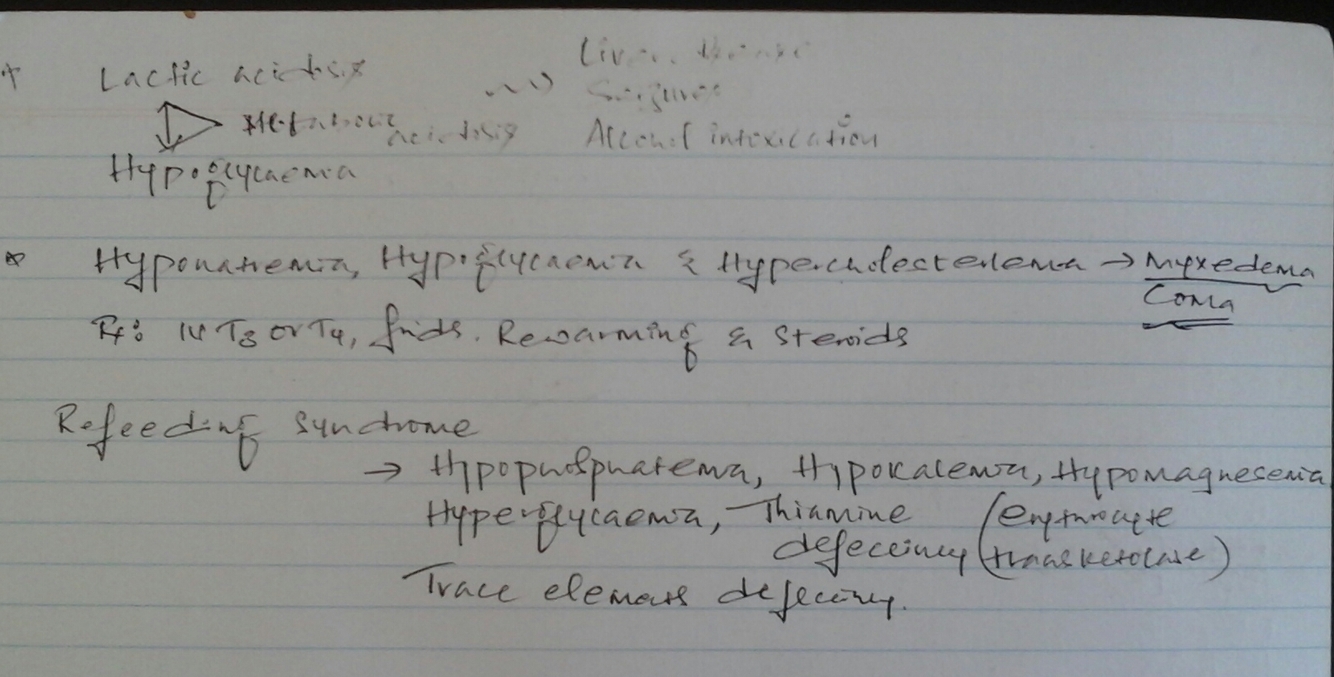 * Lactic acidosis
Liver disease
Seizures
Metabolic acidosis
Alcohol intoxication
Hypoglycaemia
* Hyponatremia, Hypoglycaemia & Hypercholesterlema → Myxedema
Coma
Rx: IV T3 or T4, fluids. Rewarming & Steroids
Refeeding Syndrome
→ Hypophosphatemia, Hypokalemia, Hypomagnesemia
Hyperglycaemia, Thiamine (erythrocyte
defeciency transketolase)
Trace elements defeciency.